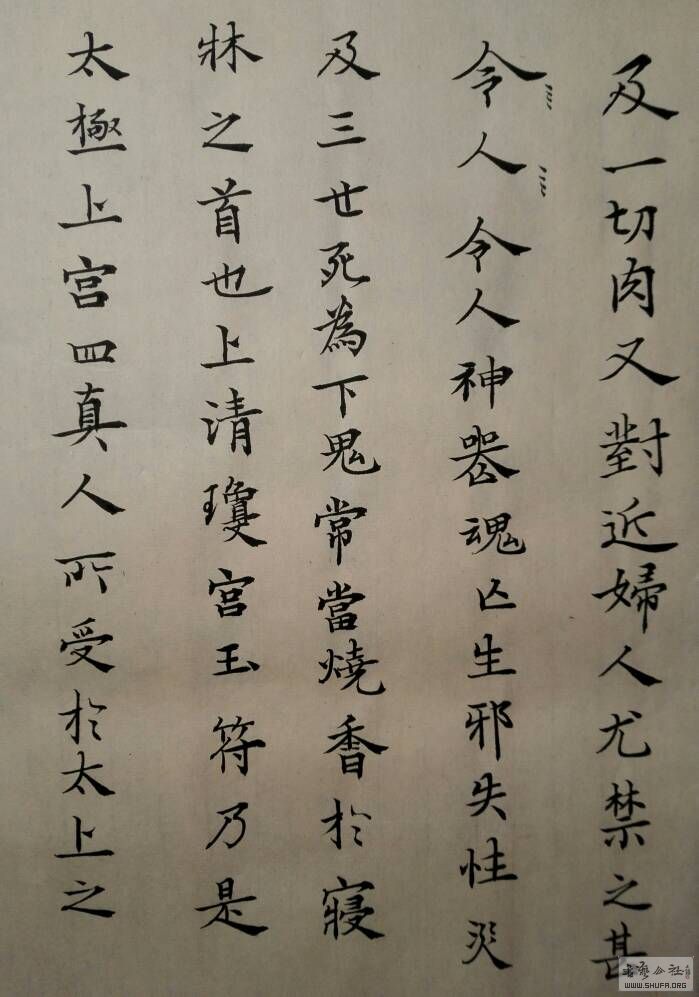 及一切肉又對近婦人尤禁之甚
令人令人神喪魂亡生邪失性災
及三世死為下鬼常當燒香於寢
牀之首也上清瓊宮玉符乃是
太極上宮四真人所受於太上之
书艺公社
WWW.SHUFA.ORG